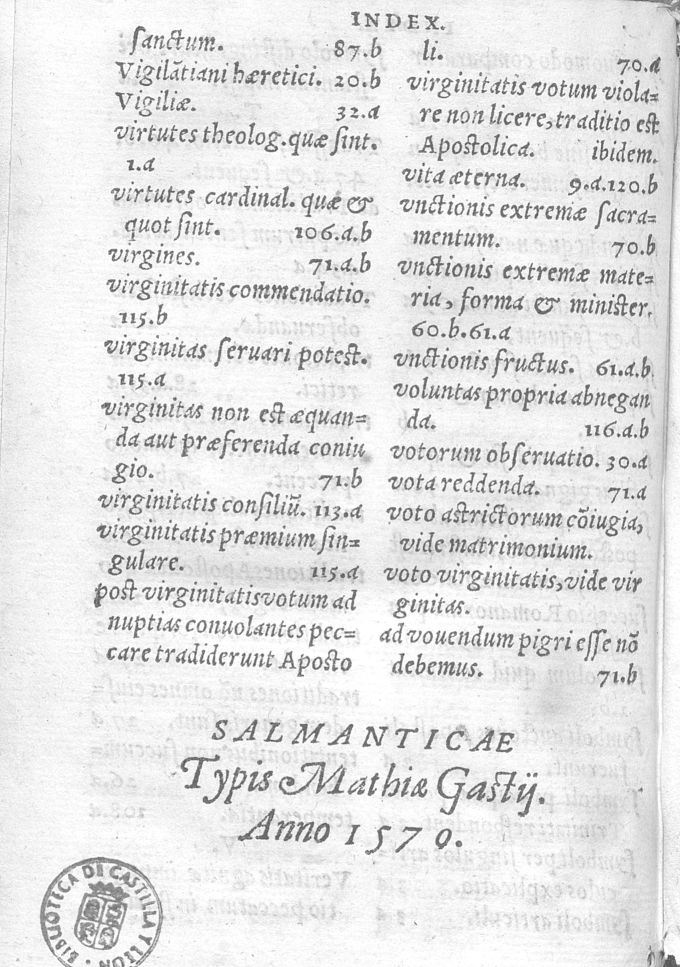 INDEX.
ſanctum. 87.b
Vigilãtiani hæretici. 20.b
Vigiliæ. 32.a
virtutes theolog.quæ ſint.
1.a
virtutes cardinal. quæ &
quot ſint. 106.a.b
virgines. 71.a.b
virginitatis commendatio.
115.b
virginitas ſeruari poteſt.
115.a
virginitas non eſt æquan=
da aut præferenda coniu
gio. 71.b
virginitatis conſiliũ. 113.a
virginitatis præmium ſin=
gulare. 115.a
poſt virginitatis votum ad
nuptias conuolantes pec=
care tradiderunt Apoſto
li. 70.a
virginitatis votum viola=
re non licere, traditio eſt
Apoſtolica. ibidem.
vita æterna. 9.a.120.b
vnctionis extremæ ſacra=
mentum. 70.b
vnctionis extremæ mate=
ria, forma & miniſter.
60.b.61.a
vnctionis fructus. 61.a.b
voluntas propria abnegan
da. 116.a.b
votorum obſeruatio. 30.a
vota reddenda. 71.a
voto aſtrictorum cõiugia,
vide matrimonium.
voto virginitatis, vide vir
ginitas.
ad vouendum pigri eſſe nõ
debemus. 71.b
SALMANTICAE
Typis Mathiæ Gaſtij.
Anno 1570.
BIBLIOTECA DE CASTILLA Y LEON